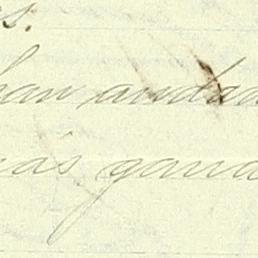 s.
han andad
más gana